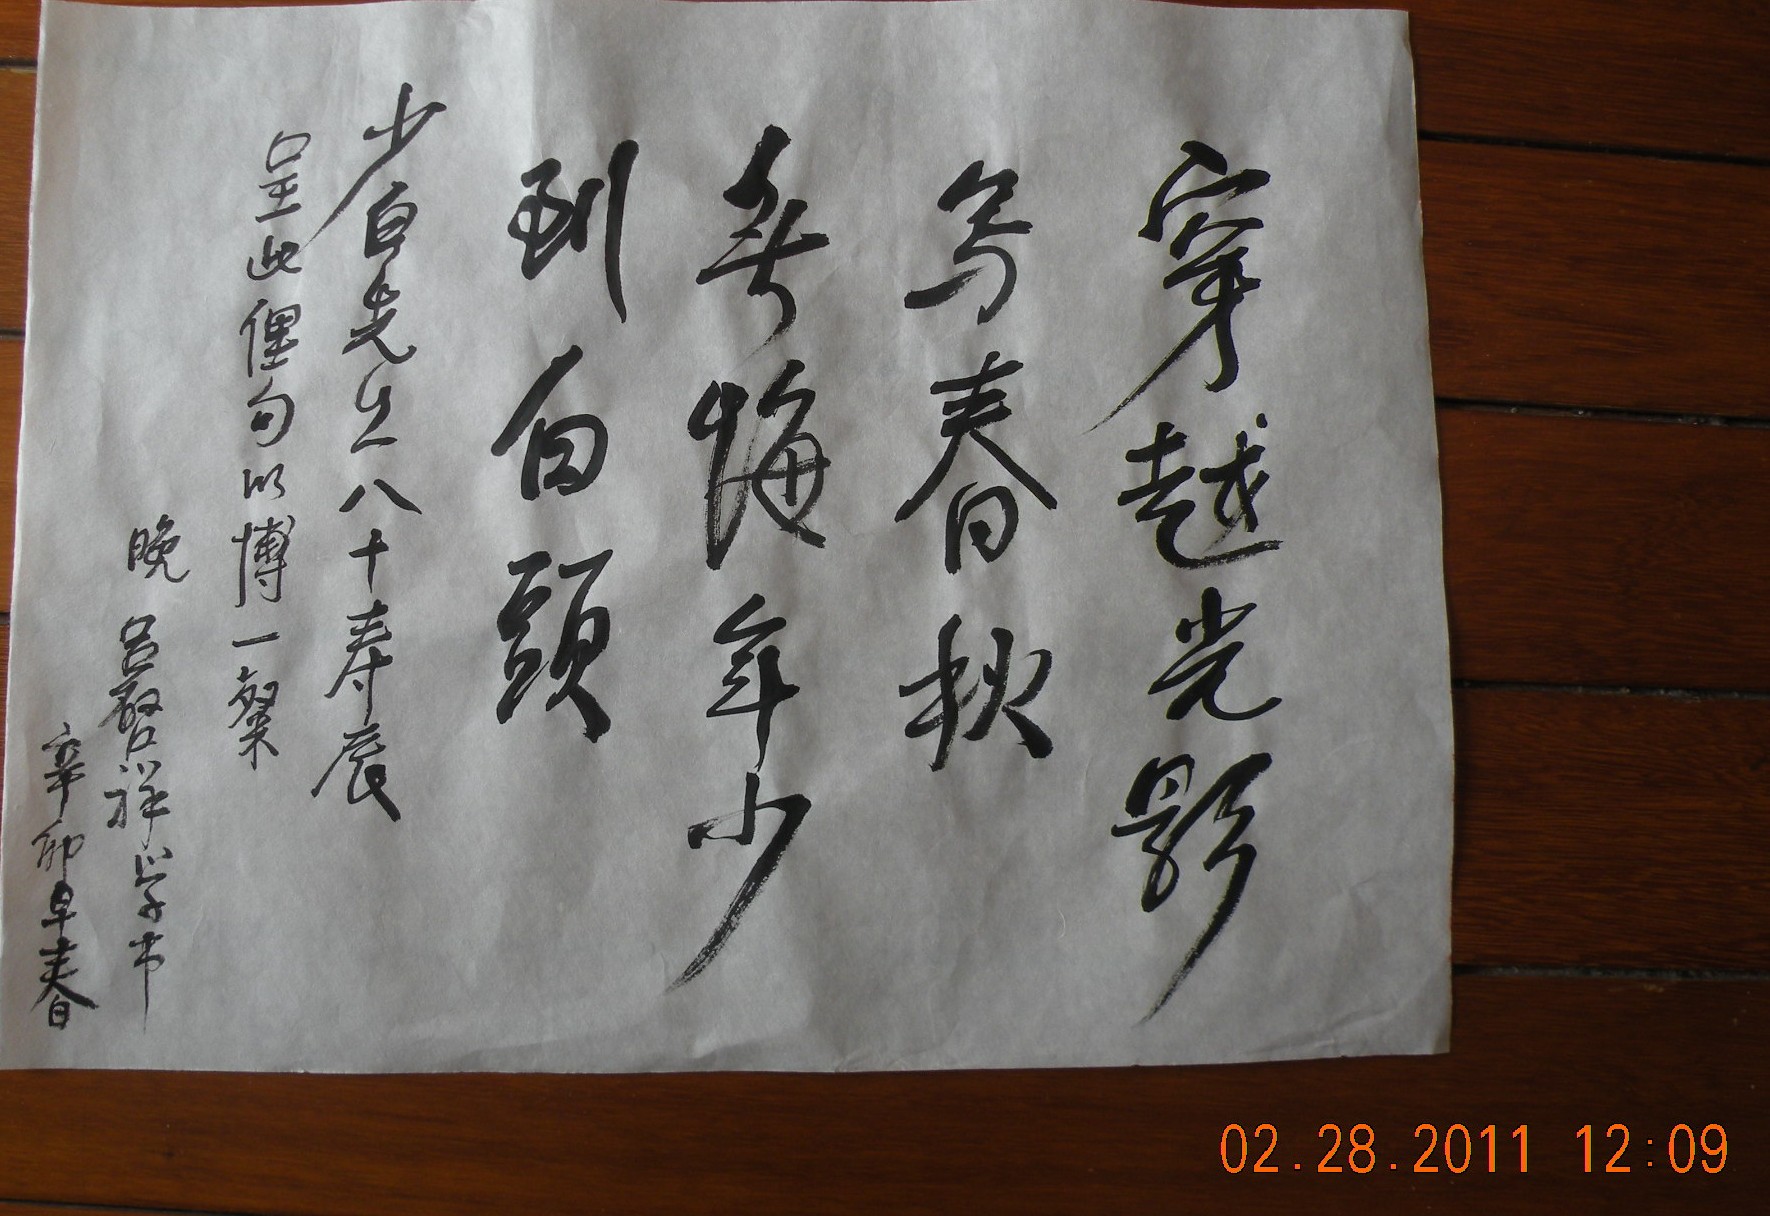 穿越光影
写春秋
无悔年少
到白頭
少白先生八十寿辰
呈此俚句以博一粲
晚 吕啓祥学书
辛卯早春
02.28.2011 12:09